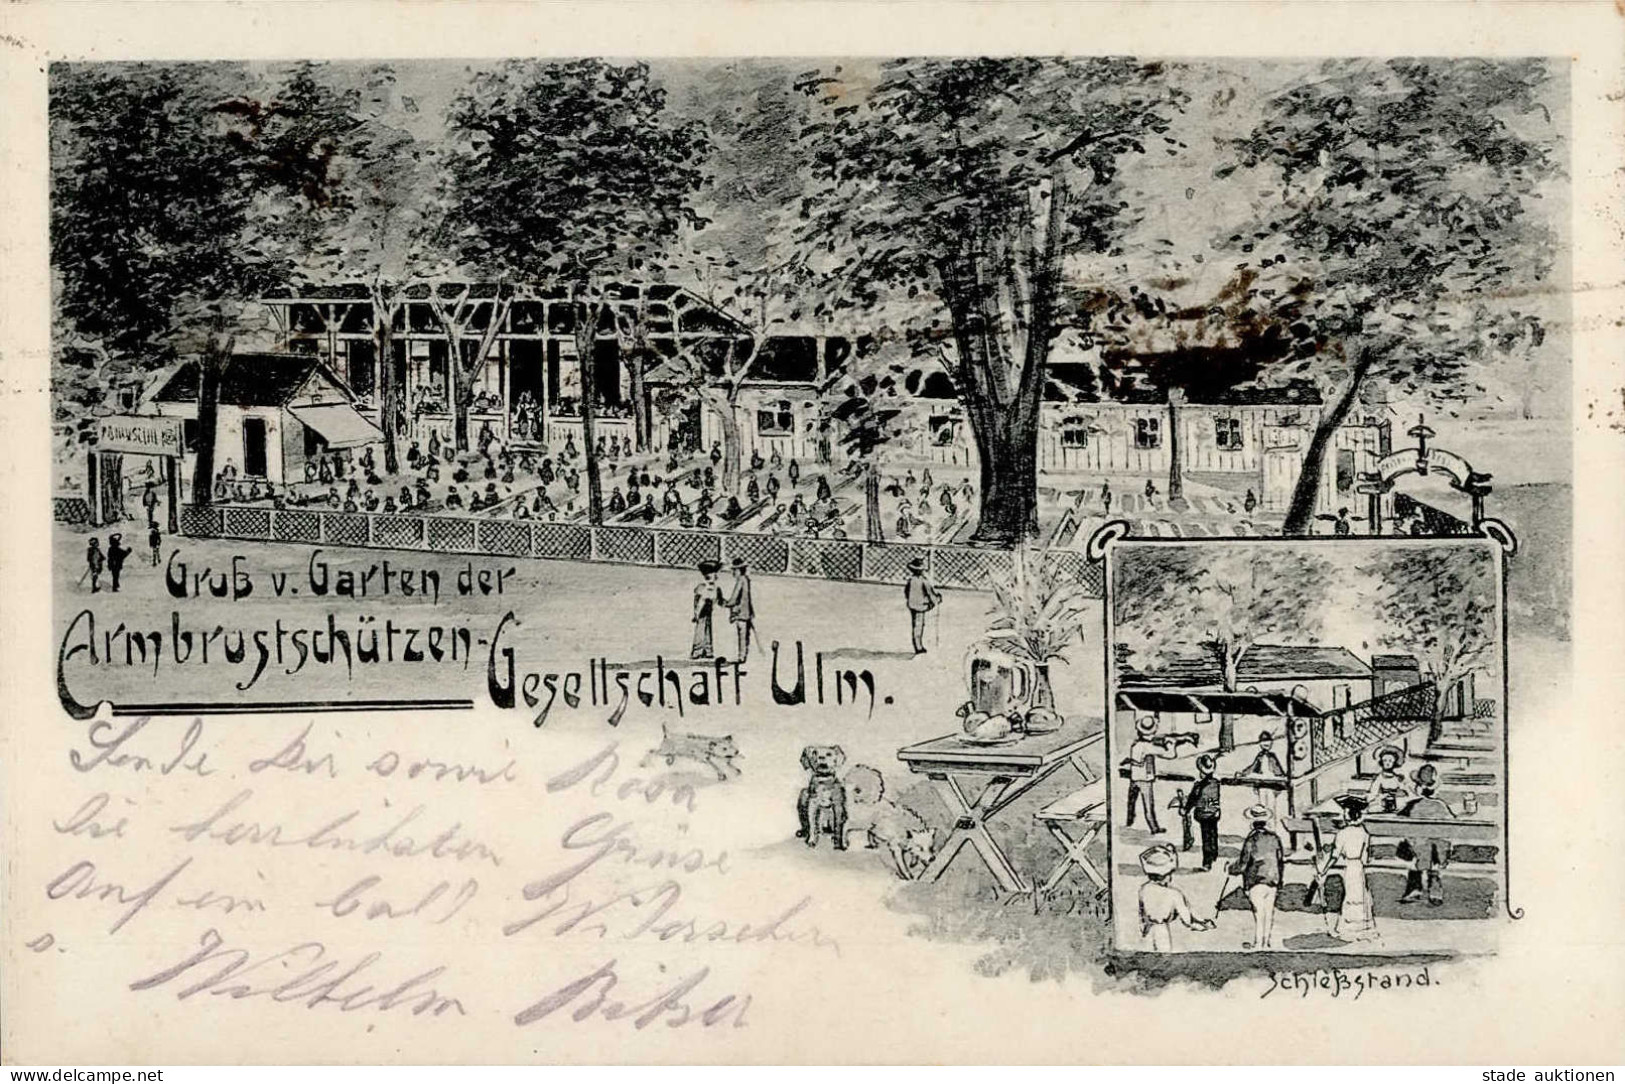 Gruß v. Garten der
Armbrustschützen-
Gesellschaft Ulm.
Sende Dir sowie Rosa
die herrlichsten Grüse
Auf ein bald Widersehen
Wilhelm Bitzer
Schießstand.
delcampe.net
stade auktionen